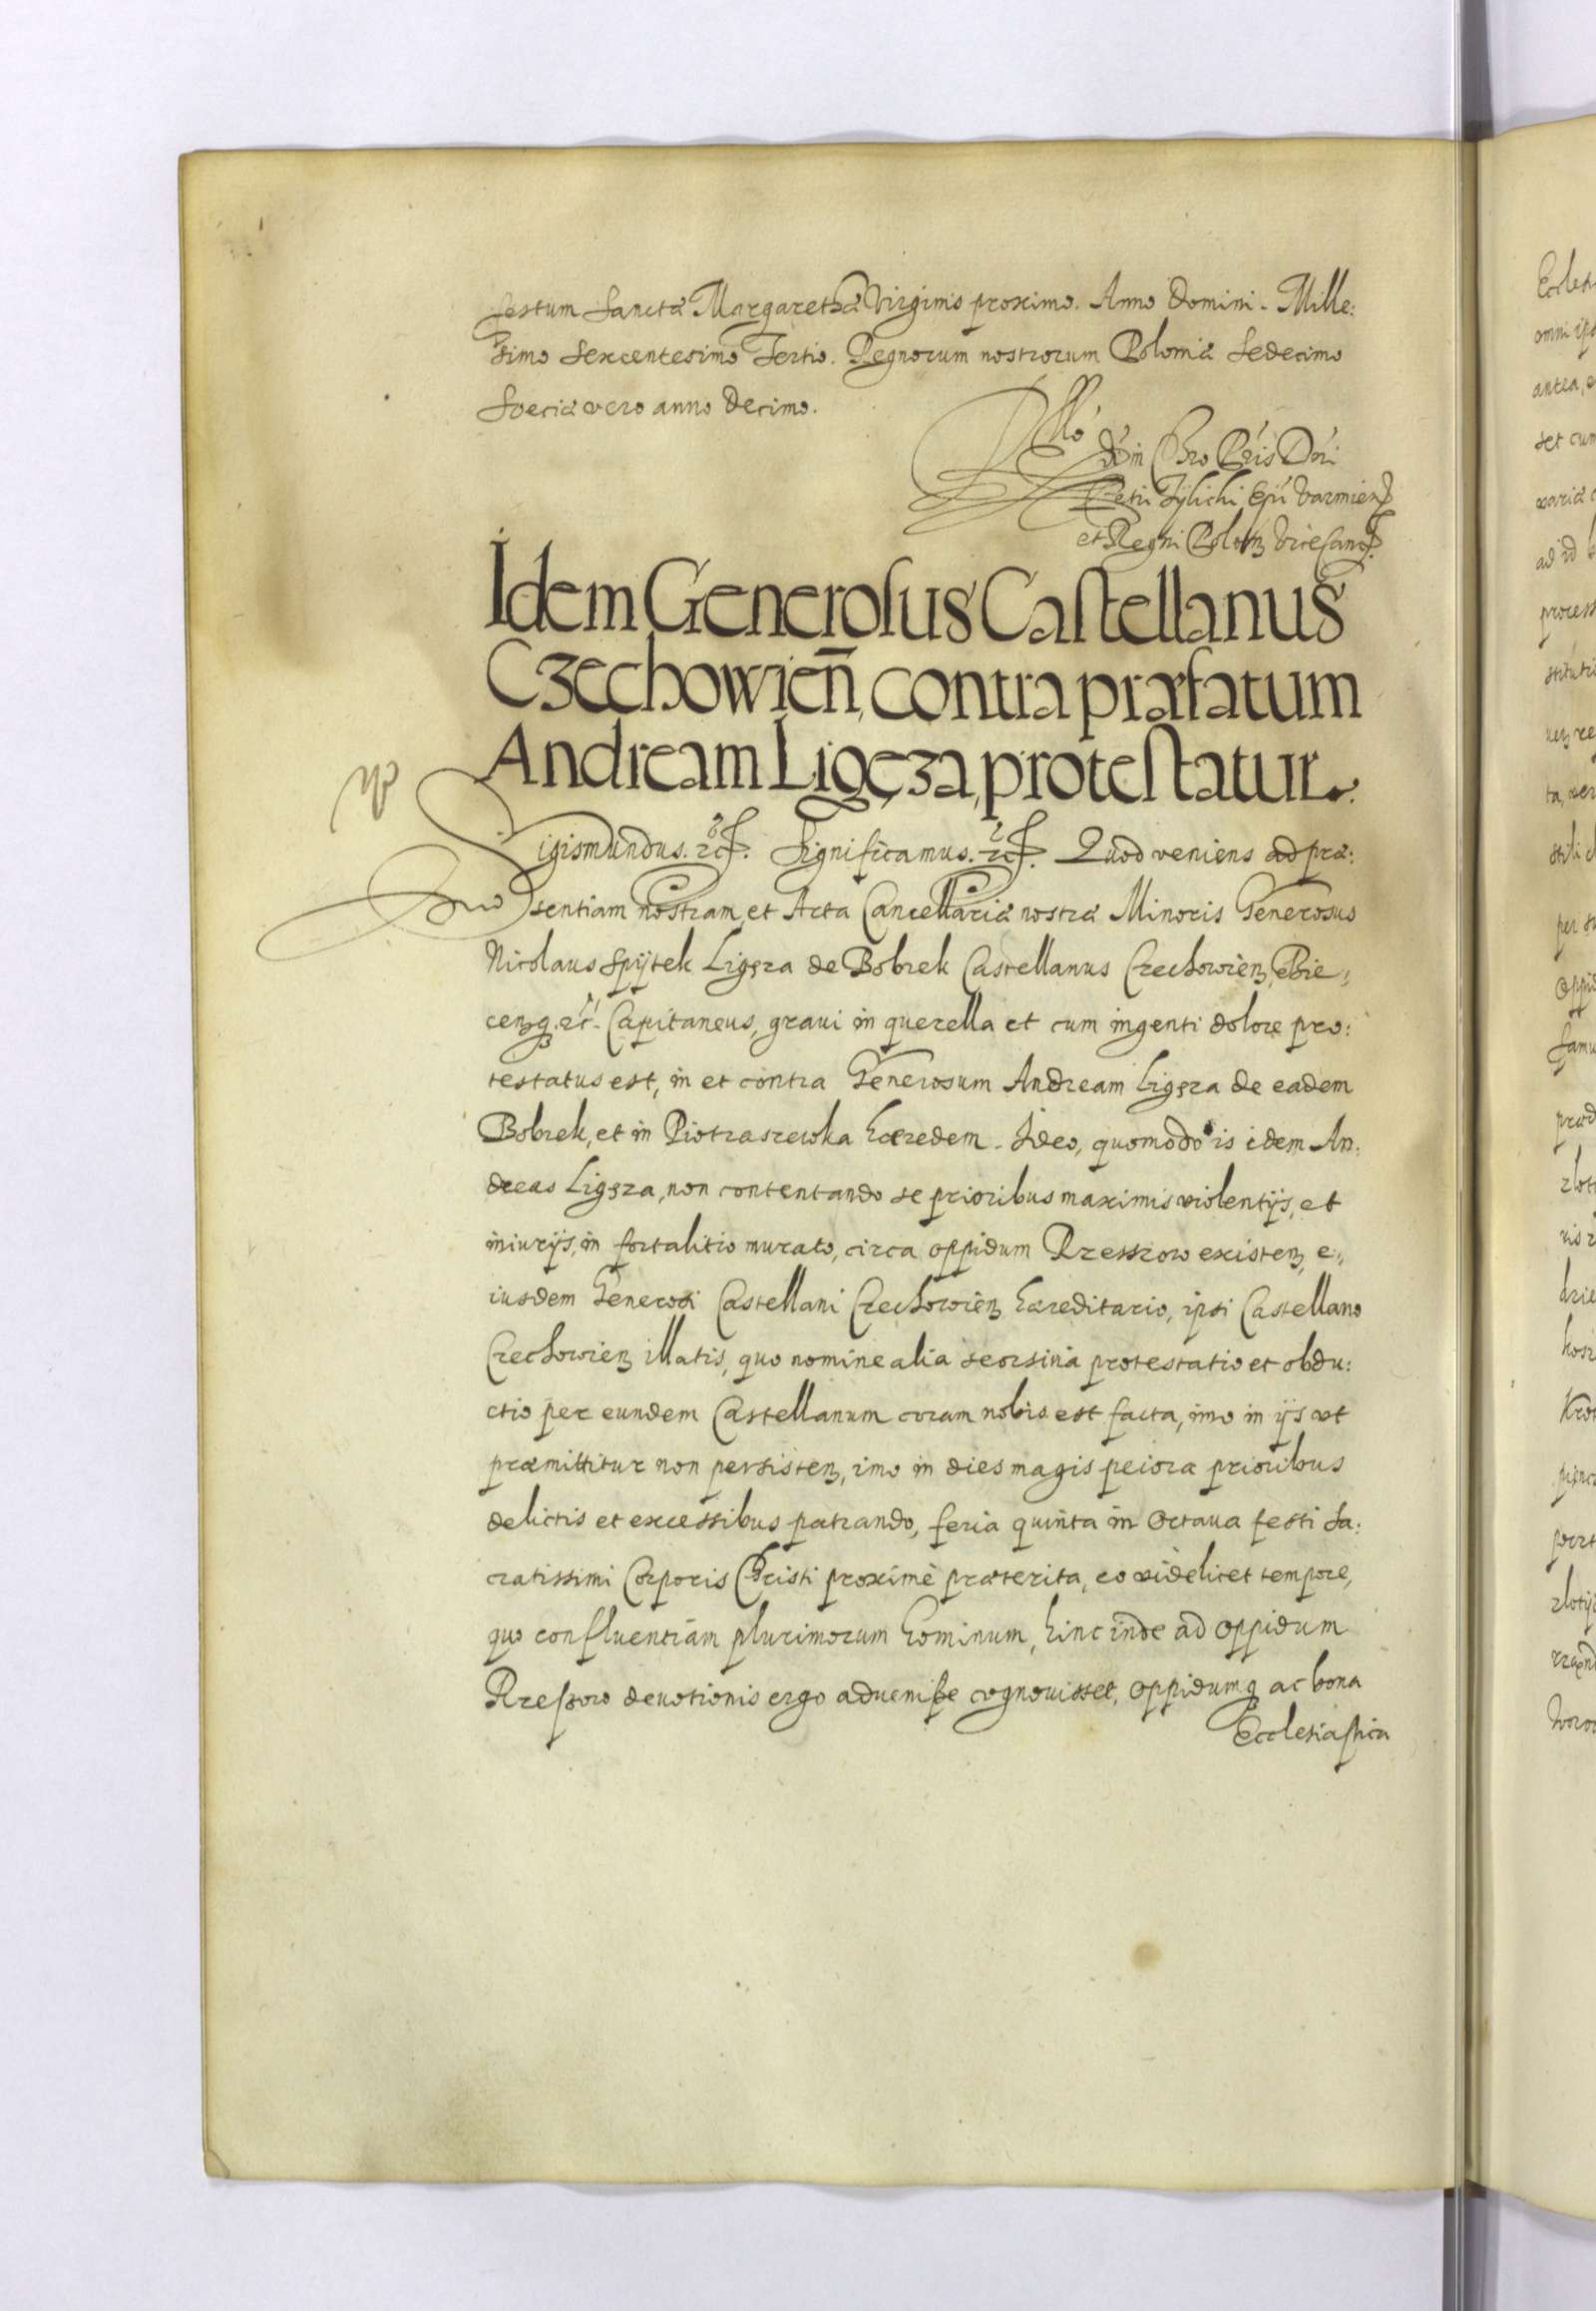 festum Sanctæ Margarethæ Virginis proximo. Anno Domini. Mille:
simo Sexcentesimo Tertio. Regnorum nostrorum Poloniæ Sedecimo
Sveciæ vero anno Decimo.
Petri Tylichi Epi Varmien
et Regni Polon Vicecanc
Idem Generosus Castellanus
Czechowien, contra præfatum
Andream Ligęza, protestatur.
Sigismundus. etc. Significamus. etc. Quod veniens ad præ:
sentiam nostram, et Acta Cancellariæ nostræ Minoris Generosus
Nicolaus Spÿtek Ligęza de Bobrek Castellanus Czechowien, Bie:
cenq. etc. Capitaneus, graui in querella et cum ingenti dolore pro:
testatus est, in et contra Generosum Andream Ligęza de eadem
Bobrek, et in Piotraszewka hæredem. Ideo, quomodo is idem An:
dreas Ligęza, non contentando se prioribus maximis violentijs, et
iniurijs, in fortalitio murato, circa oppidum Rzesszow existen, e:
iusdem Generosi Castellani Czechowien hæreditario, ipsi Castellano
Czechowien illatis, quo nomine alia seorsiua protestatio et obdu:
ctio per eundem Castellanum coram nobis est facta, imo in ijs vt
præmittitur non persisten, imo in dies magis peiora prioribus
delictis et excessibus patrando, feria quinta in Octaua festi Sa:
cratissimi Corporis Christi proximè præterita, eo videlicet tempore,
quo confluentiam plurimorum hominum, hinc inde ad oppidum
Rzeszow deuotionis ergo aduenisse cognouisset, oppidumq ac bona
Ecclesiastica